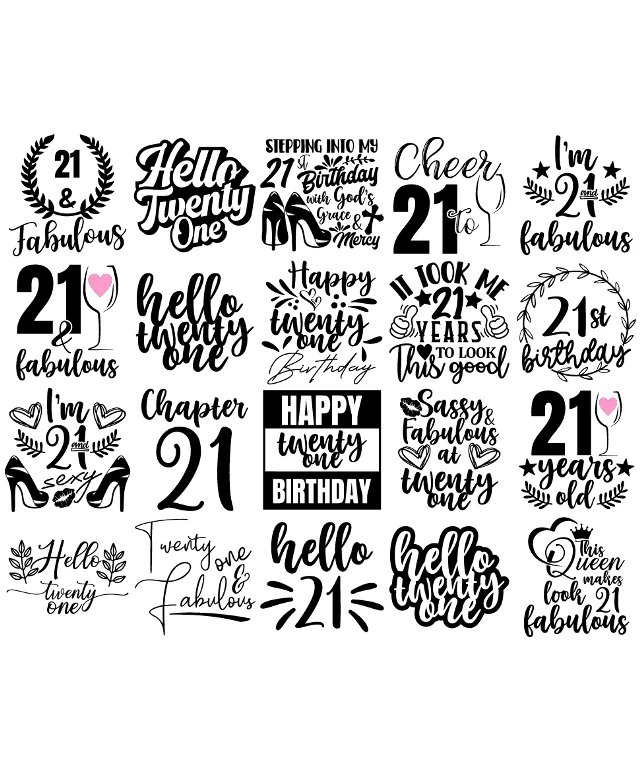 21
&
Fabulous
Hello
Twenty
One
STEPPING INTO MY
21st
Birthday
with God's
Grace &
Mercy
Cheer
21 to
I'm
21 and
fabulous
21
&
fabulous
hello
twenty
one
Happy
twenty
one
Birthday
IT TOOK ME
21
YEARS
TO LOOK
This good
21st
birthday
I'm
21 and
sexy
Chapter
21
HAPPY
twenty
one
BIRTHDAY
Sassy
&
Fabulous
at
twenty
one
21
years
old
Hello
twenty
one
Twenty one
&
Fabulous
hello
21
hello
twenty
one
This
Queen
makes
look 21
fabulous